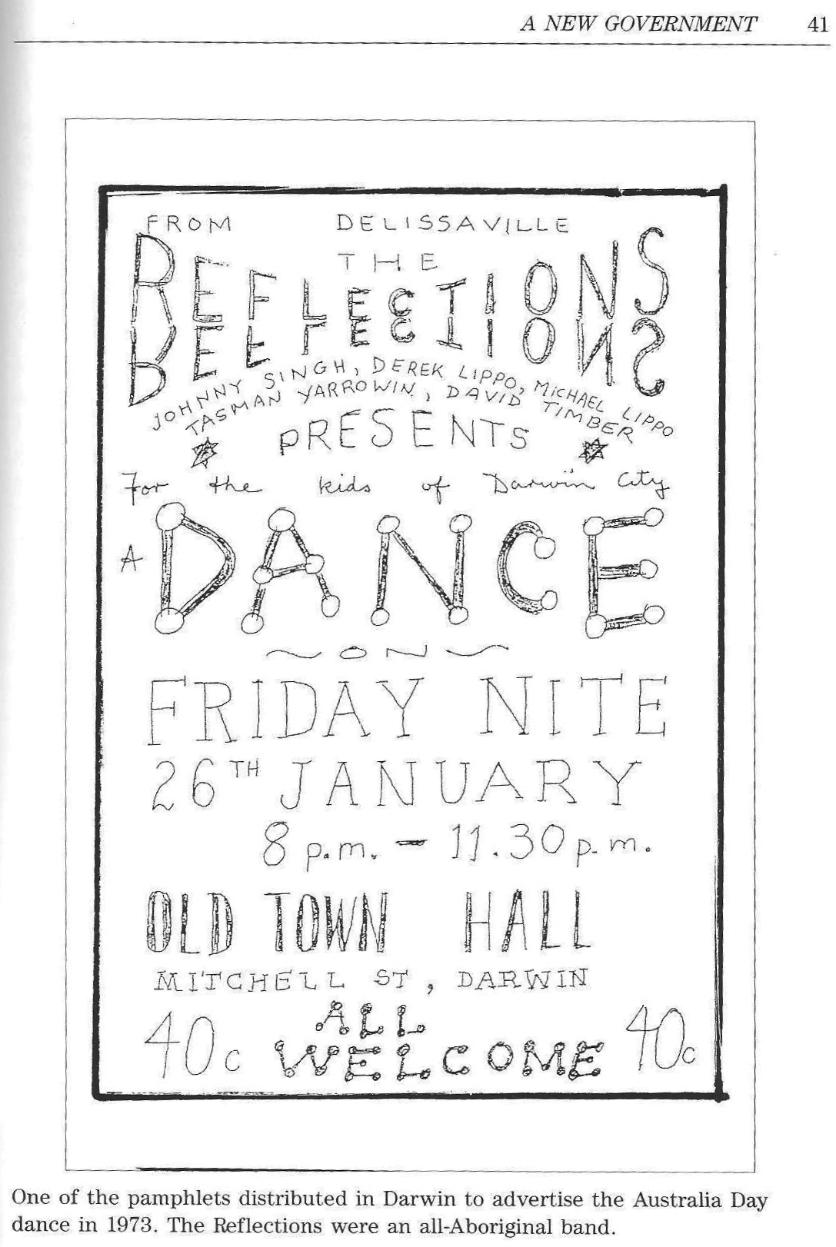 A NEW GOVERNMENT 41
FROM DELISSAVILLE
THE
REFLECTIONS
JOHNNY SINGH, DEREK LIPPO, MICHAEL LIPPO
TASMAN YARROWIN, DAVID TIMBER
PRESENTS
For the kids of Darwin City
A DANCE
ON
FRIDAY NITE
26TH JANUARY
8 p.m. - 11.30 p.m.
OLD TOWN HALL
MITCHELL ST, DARWIN
40c ALL WELCOME 40c
One of the pamphlets distributed in Darwin to advertise the Australia Day
dance in 1973. The Reflections were an all-Aboriginal band.